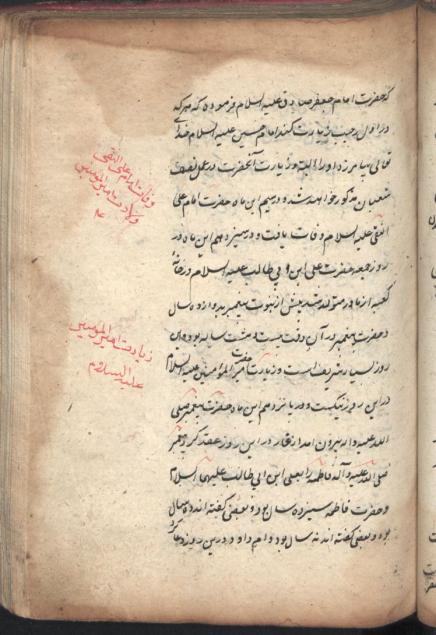 که حضرت امام جعفر صادق علیه السلام فرموده که هر که
در اول رجب زیارت کند امام حسین علیه السلام خدای
تعالی بیامرزد او را البته و زیارت آنحضرت در عمل نصف
شعبان مذکور خواهد شد و در سیم این ماه حضرت امام علی
النقی علیه السلام وفات یافت و در سیزدهم این ماه در
روز جمعه حضرت علی ابن ابی طالب علیه السلام در خانه
کعبه متولد شد پیش از نبوت پیغمبر بدوازده سال
و حضرت پیغمبر در آن وقت بیست و هشت ساله بود و این
روز بسیار شریف است و زیارت حضرت امیر المؤمنین علیه السلام
در این روز نیکست و در پانزدهم این ماه حضرت پیغمبر صلی
الله علیه و آله بیرون آمد از غار در این روز عقد کرد پیغمبر
صلی الله علیه و آله فاطمه را بعلی ابن ابی طالب علیهما السلام
و حضرت فاطمه سیزده ساله بود و بعضی گفته اند ده سال
بود و بعضی گفته اند نه سال بود و ام داود درین روز دعا کرد
وفات امام علی النقی
ولادت امیر المؤمنین
ع
زیارت امیر المؤمنین
علیه السلام